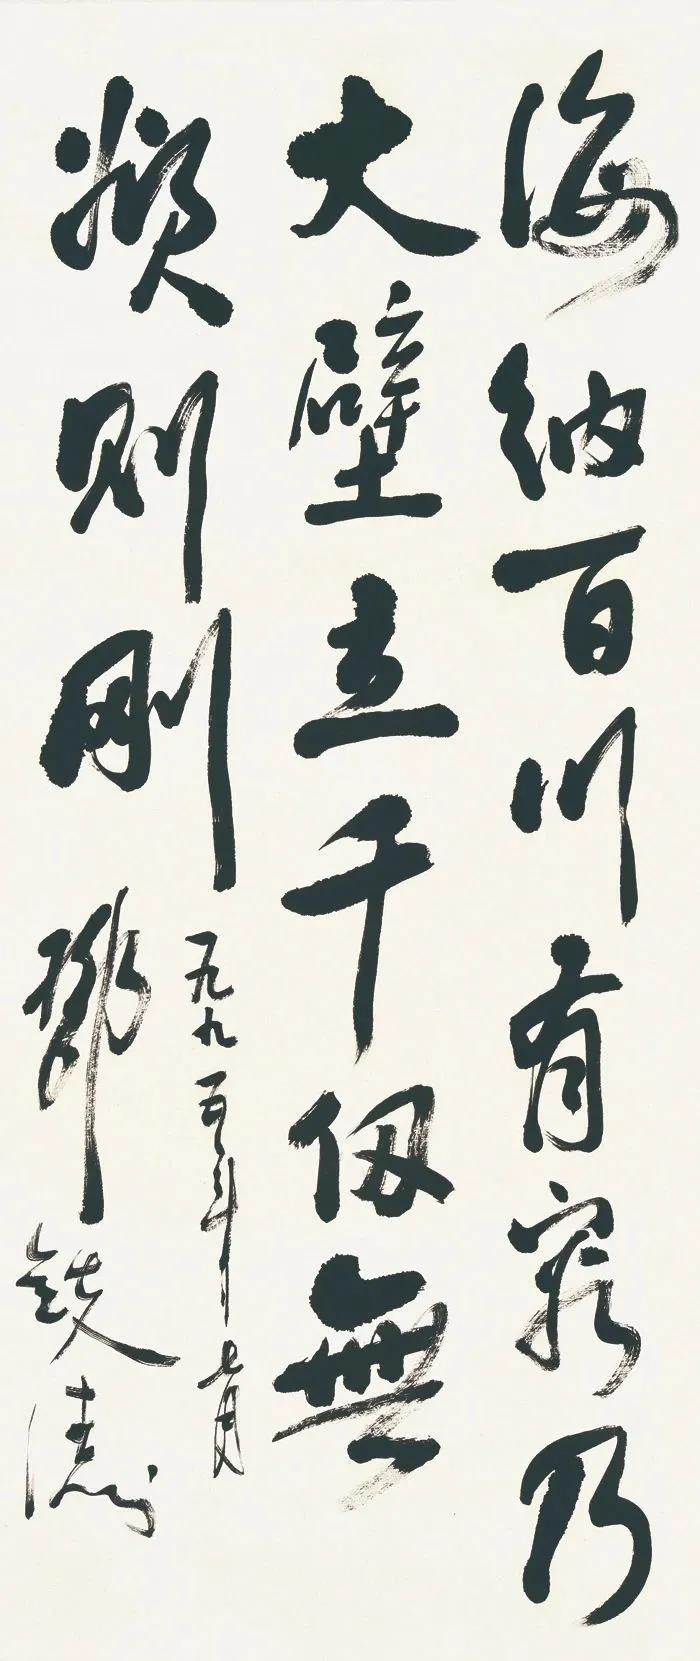 海纳百川有容乃
大壁立千仞無
欲则刚
一九九五年七月
鄧鉄涛